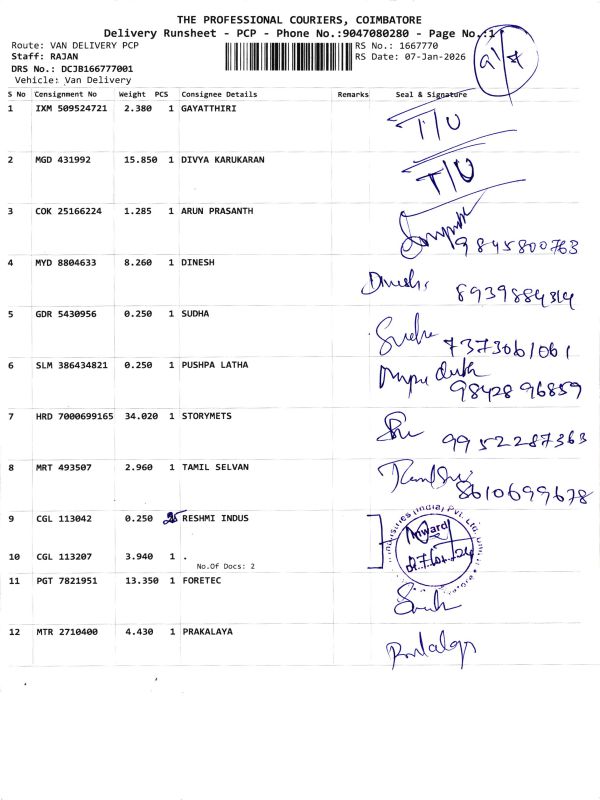 THE PROFESSIONAL COURIERS, COIMBATORE
Delivery Runsheet - PCP - Phone No.:9047080280 - Page No.:1
Route: VAN DELIVERY PCP RS No.: 1667770
Staff: RAJAN RS Date: 07-Jan-2026
DRS No.: DCJB166777001
Vehicle: Van Delivery
S No Consignment No Weight PCS Consignee Details Remarks Seal & Signature
1 IXM 509524721 2.380 1 GAYATTHIRI T/U
2 MGD 431992 15.850 1 DIVYA KARUKARAN T/U
3 COK 25166224 1.285 1 ARUN PRASANTH
9845800763
4 MYD 8804633 8.260 1 DINESH Dinesh
8939884314
5 GDR 5430956 0.250 1 SUDHA Sudha
7373061061
6 SLM 386434821 0.250 1 PUSHPA LATHA
9842896859
7 HRD 7000699165 34.020 1 STORYMETS
9952287363
8 MRT 493507 2.960 1 TAMIL SELVAN
8610699678
9 CGL 113042 0.250 RESHMI INDUS
Industries (India) Pvt. Ltd.
Inward
10 CGL 113207 3.940 1 .
No.Of Docs: 2
11 PGT 7821951 13.350 1 FORETEC
12 MTR 2710400 4.430 1 PRAKALAYA